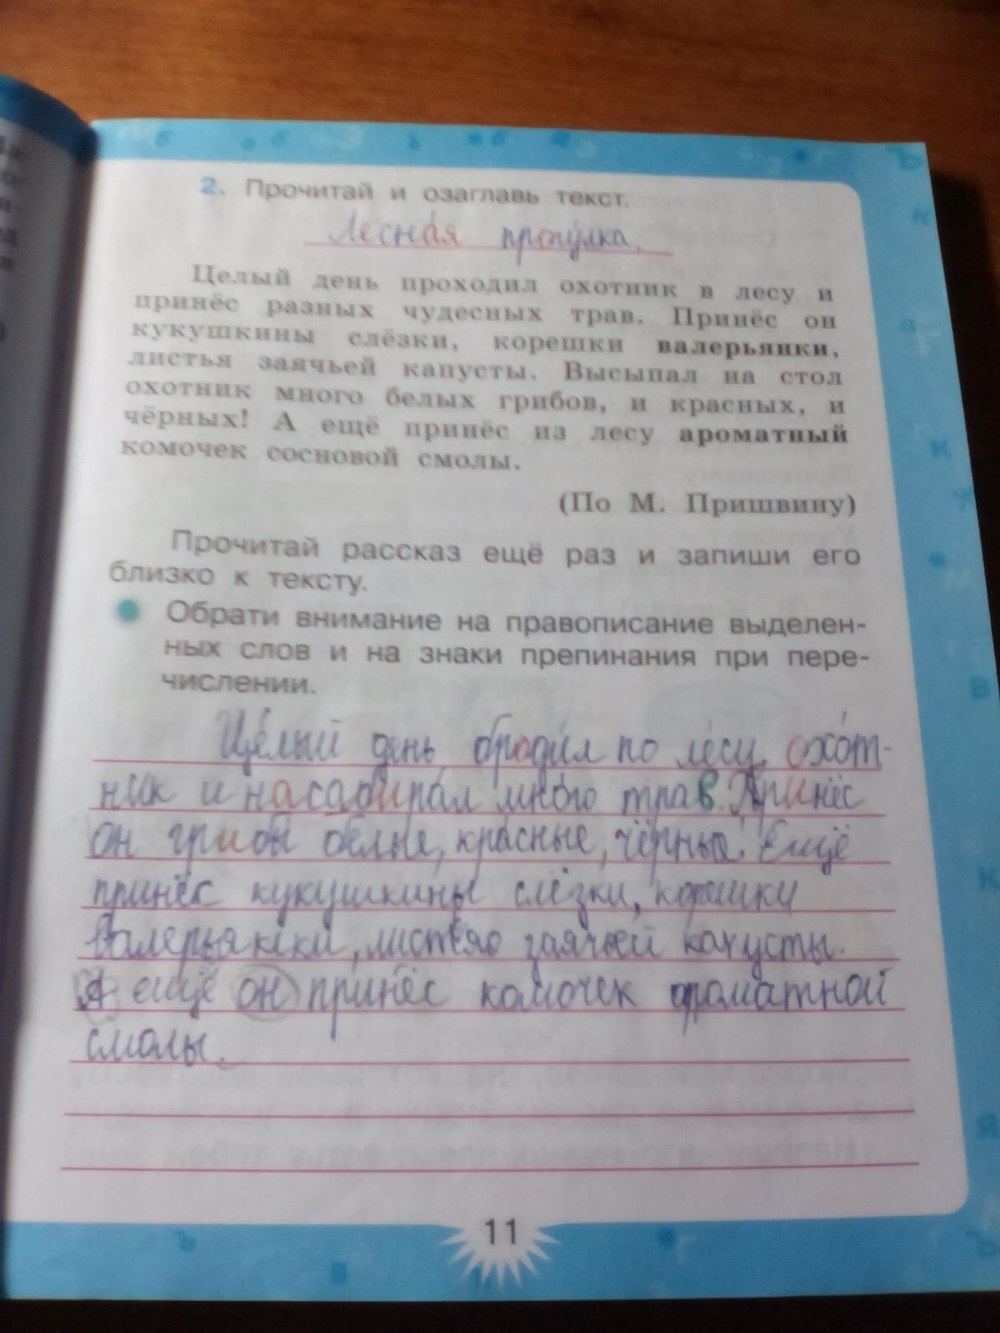 2. Прочитай и озаглавь текст.
Лесная прогулка.
Целый день проходил охотник в лесу и
принёс разных чудесных трав. Принёс он
кукушкины слёзки, корешки валерьянки,
листья заячьей капусты. Высыпал на стол
охотник много белых грибов, и красных, и
чёрных! А ещё принёс из лесу ароматный
комочек сосновой смолы.
(По М. Пришвину)
Прочитай рассказ ещё раз и запиши его
близко к тексту.
Обрати внимание на правописание выделен-
ных слов и на знаки препинания при пере-
числении.
Целый день бродил по лесу охот-
ник и насабирал много трав. Принёс
он грибы белые, красные, чёрные! Ещё
принёс кукушкины слёзки, корешки
валерьянки, заячьей капусты.
А ещё он принёс комочек ароматной
смолы.
11